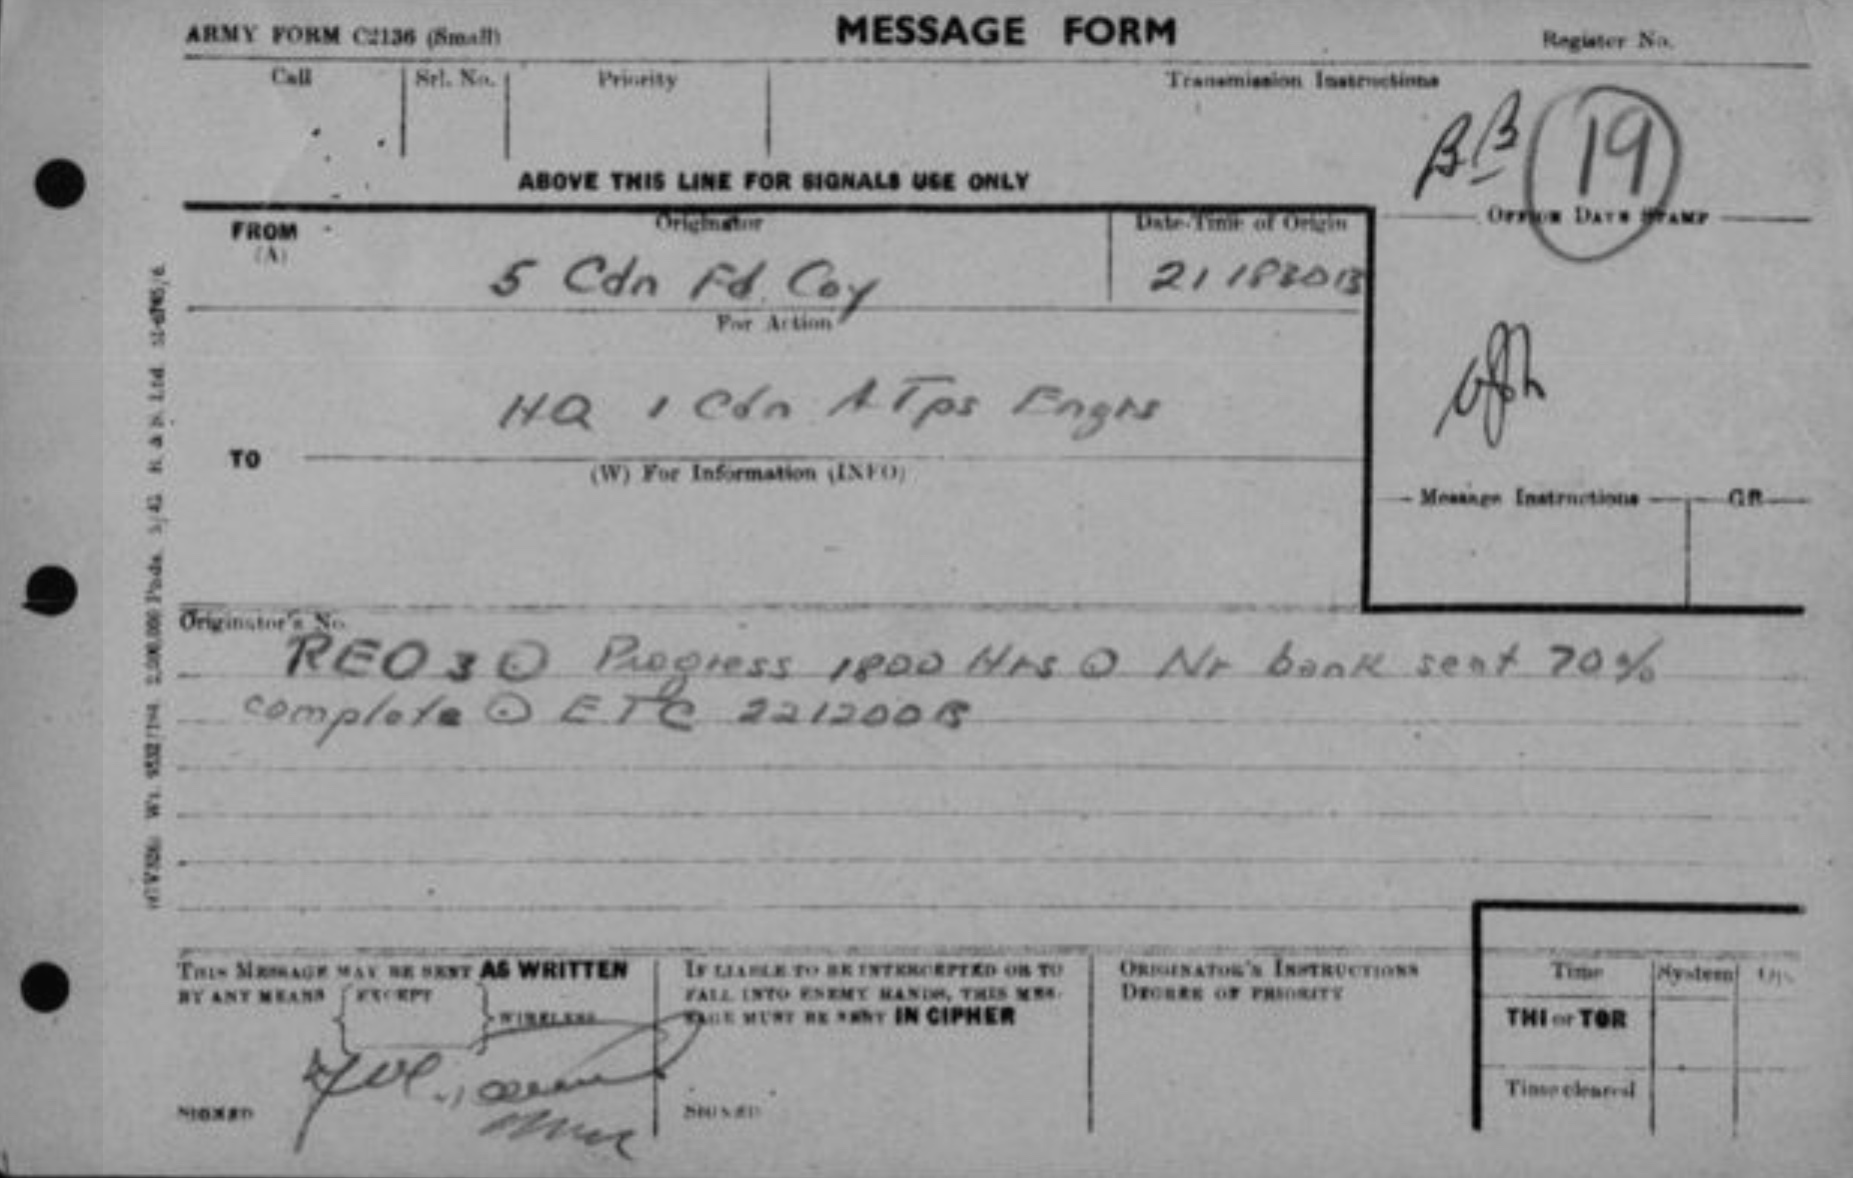 ARMY FORM C2136 (Small)
MESSAGE FORM
Register No.
Call
Srl. No.
Priority
Transmission Instructions
BB 19
ABOVE THIS LINE FOR SIGNALS USE ONLY
FROM
(A)
Originator
Date-Time of Origin
OFFICE DATE STAMP
5 Cdn Fd. Coy
211830B
For Action
HQ 1 Cdn A Tps Engrs
TO
(W) For Information (INFO)
Message Instructions
GR
Originator's No.
REO 3 ⊙ Progress 1800 Hrs ⊙ Nr bank sent 70%
complete ⊙ ETC 221200B
THIS MESSAGE MAY BE SENT AS WRITTEN
BY ANY MEANS
EXCEPT
WIRELESS
SIGNED
IF LIABLE TO BE INTERCEPTED OR TO
FALL INTO ENEMY HANDS, THIS MES-
SAGE MUST BE SENT IN CIPHER
SIGNED
ORIGINATOR'S INSTRUCTIONS
DEGREE OF PRIORITY
Time
System
Op.
THI or TOR
Time cleared